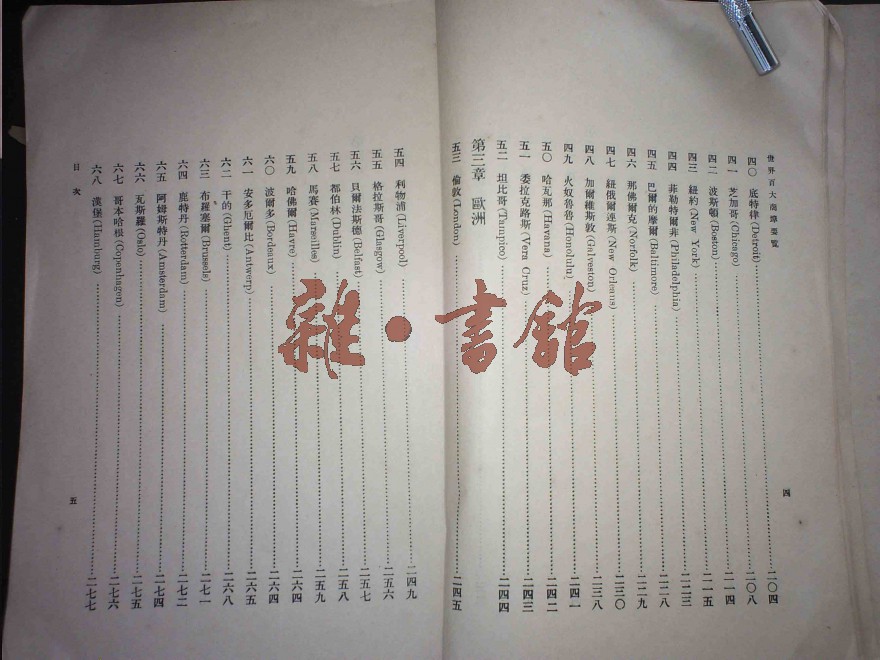 世界百大商埠要覽
四〇 底特律(Detroit)……二〇四
四一 芝加哥(Chicago)……二〇八
四二 波斯頓(Boston)……二一四
四三 紐約(New York)……二一五
四四 菲勒特爾非(Philadelphia)……二二三
四五 巴爾的摩爾(Baltimore)……二二八
四六 那佛爾克(Norfolk)……二二九
四七 紐俄爾連斯(New Orleans)……二三〇
四八 加爾維斯敦(Galveston)……二三八
四九 火奴魯魯(Honolulu)……二四一
五〇 哈瓦那(Havana)……二四二
五一 委拉克路斯(Vera Cruz)……二四三
五二 坦比哥(Tampico)……二四四
第三章 歐洲
五三 倫敦(London)……二四五
四
五四 利物浦(Liverpool)……二四九
五五 格拉斯哥(Glasgow)……二五六
五六 貝爾法斯德(Belfast)……二五七
五七 都伯林(Dublin)……二五八
五八 馬賽(Marseilles)……二五九
五九 哈佛爾(Havre)……二六四
六〇 波爾多(Bordeaux)……二六四
六一 安多厄爾比(Antwerp)……二六五
六二 干的(Ghent)……二六八
六三 布羅塞爾(Brussels)……二七一
六四 鹿特丹(Rotterdam)……二七二
六五 阿姆斯特丹(Amsterdam)……二七四
六六 瓦斯羅(Oslo)……二七五
六七 哥本哈根(Copenhagen)……二七六
六八 漢堡(Hamburg)……二七七
目次
五
雜·書館